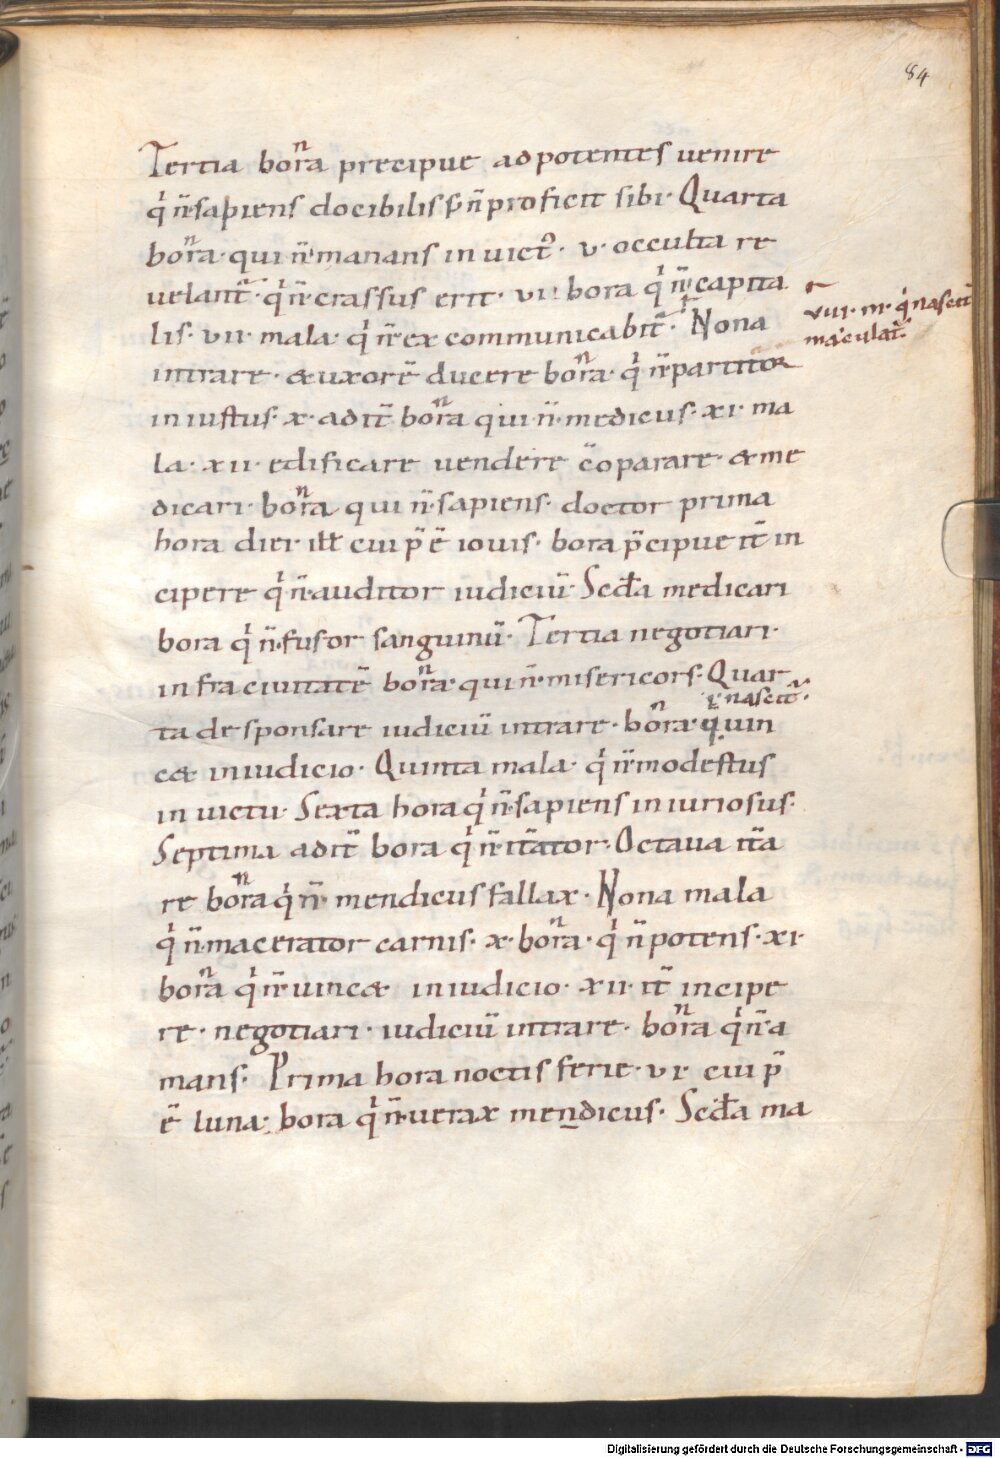 84
Tertia bonͬa precipue ad potentes uenire
qͥ n̄·sapiens docibilis sꝫ n̄ proficit sibi· Quarta
bonͬa· qui n̄· manans in uict᾿· v· occulta re
uelant̄· qͥ n̄· crassus erit· vi· bora qͥ n̄ capita
vııı· m· qͥ nascit̄
lis· vii· mala· qͥ n̄· excommunicabit̄· Nona
maculat̄·
intrare· & uxorē ducere bonͬa· qͥ n̄ partitor
in iustus· x· ad it̄ bonͬa qui n̄· medicus· xi· ma
la· xii· edificare uendere c̄oparare· & me
dicari· bonͬa qui n̄·sapiens· doctor prima
hora diei· ill̄ cui p̄ ē iouis· bora p̄cipue it̄ in
cipere qͥ n̄·auditor iudiciū· Scđa medicari
bora qͥ n̄·fusor sanguinū· Tertia negotiari·
infra ciuitatē bonͬa· qui n̄·misericors· Quar
qͥ nascit̄·
ta desponsare iudiciū intrare· bonͬa· q̇uin
c& in iudicio· Quinta mala· qͥ n̄·modestus
in uictu· Sexta hora qͥ n̄·sapiens iniuriosus·
Septima ad it̄ bora qͥ n̄·it̄ator· Octaua it̄a
re bonͬa qͥ n̄· mendicus fallax· Nona mala
qͥ n̄·macerator carnis· x· bonͬa· qͥ n̄ potens· xi·
bonͬa qͥ n̄·uinc& in iudicio· xii· it̄ incipe
re· negotiari· iudiciū intrare· bonͬa qͥ n̄·a
mans· Prima hora noctis ferie· vi· cui p̄
ē luna· bora qͥ n̄·uerax mendicus· Scđa ma
Digitalisierung gefördert durch die Deutsche Forschungsgemeinschaft - DFG